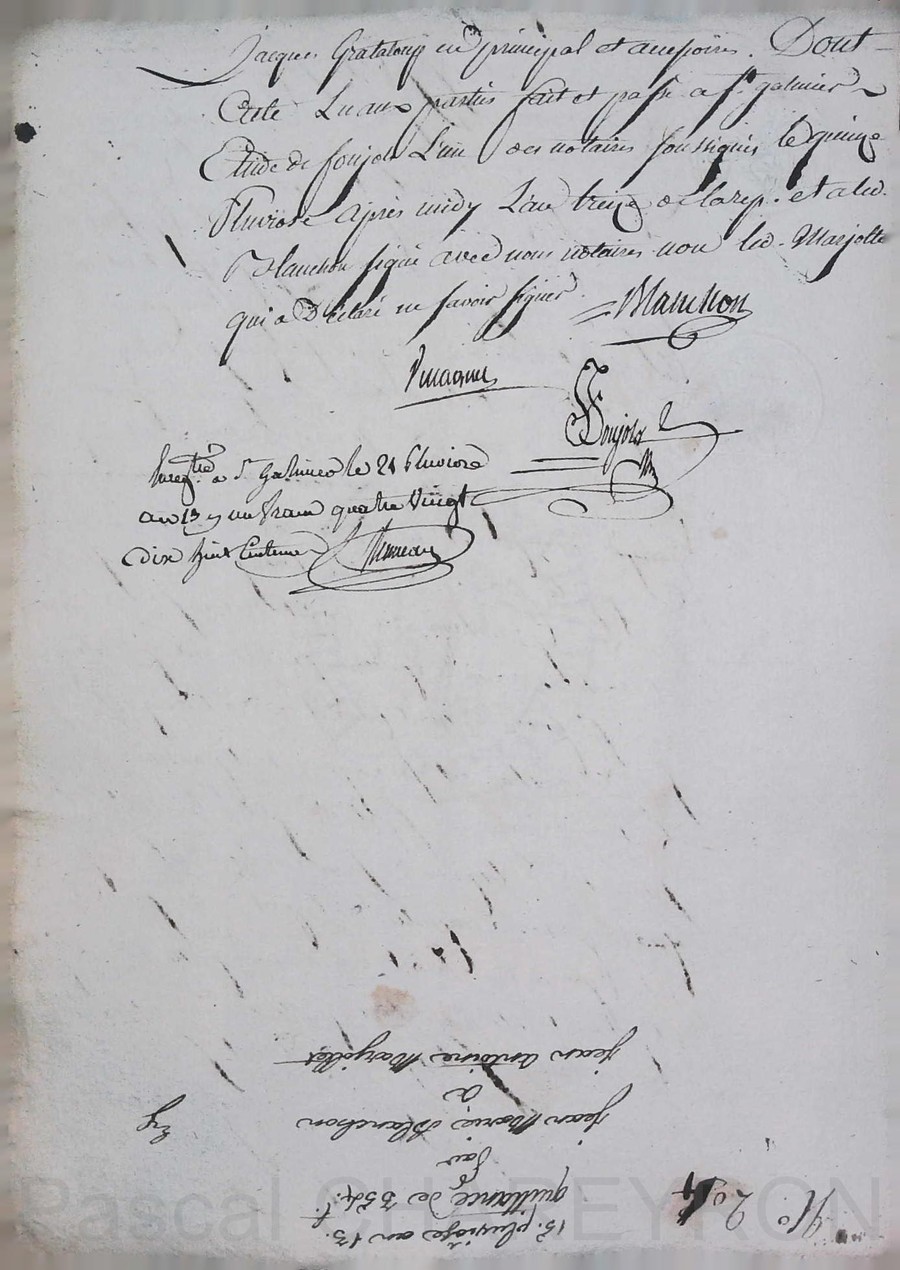 Jacques Grataloup en principal et accessoires. Dont
Acte Lu aux parties fait et passé a St galmier
Etude de foujols L'un des notaires soussignés le quinze
Pluviose après midy L'an treize de la rep. et a led.
Blanchon signé avec nous notaires non led. Marjollet
qui a Déclaré ne savoir signer
Blanchon
Foujols
Enregtré a St Galmier le 21 Pluviose
an 13 un franc quatre Vingt
dix huit Centimes
15. pluviose an 13.
quittance de 334. f.
par
jean Marie Blanchon
a
jean antoine Marjollet
No.
Pascal CHAREYRON